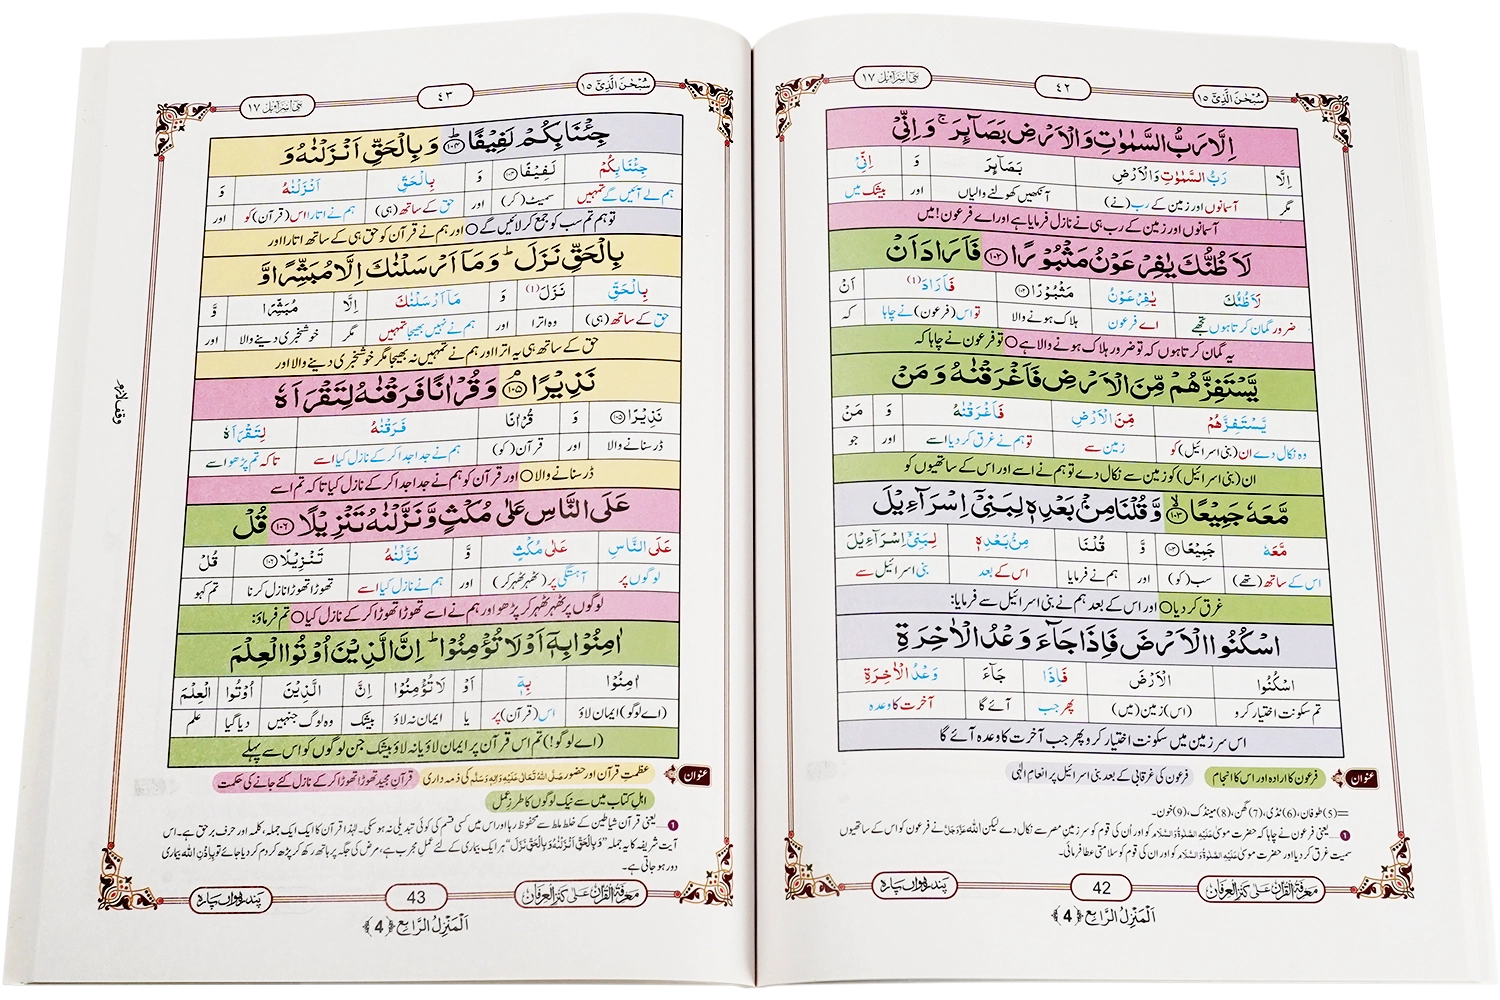 سُبْحٰنَ الَّذِیْۤ ١٥
٤٢
بنی اسرآءیل ١٧
اِلَّا رَبُّ السَّمٰوٰتِ وَ الْاَرْضِ بَصَآىِٕرَ ۚ وَ اِنِّیْ
اِلَّا رَبُّ السَّمٰوٰتِ وَ الْاَرْضِ بَصَآىِٕرَ وَ اِنِّیْ
مگر آسمانوں اور زمین کے رب (نے) آنکھیں کھولنے والیاں اور بیشک میں
آسمانوں اور زمین کے رب ہی نے نازل فرمایا ہے اور اے فرعون! میں
لَاَظُنُّكَ یٰفِرْعَوْنُ مَثْبُوْرًا ﴿۱۰۲﴾ فَاَرَادَ اَنْ
لَاَظُنُّكَ یٰفِرْعَوْنُ مَثْبُوْرًا ﴿۱۰۲﴾ فَاَرَادَ (1) اَنْ
ضرور گمان کرتا ہوں تجھے اے فرعون ہلاک ہونے والا تو اس (فرعون) نے چاہا کہ
یہ گمان کرتا ہوں کہ تو ضرور ہلاک ہونے والا ہے ○ تو فرعون نے چاہا کہ
یَّسْتَفِزَّهُمْ مِّنَ الْاَرْضِ فَاَغْرَقْنٰهُ وَ مَنْ
یَّسْتَفِزَّهُمْ مِّنَ الْاَرْضِ فَاَغْرَقْنٰهُ وَ مَنْ
وہ نکال دے ان (بنی اسرائیل) کو زمین سے تو ہم نے غرق کر دیا اسے اور جو
ان (بنی اسرائیل) کو زمین سے نکال دے تو ہم نے اسے اور اس کے ساتھیوں کو
مَّعَهٗ جَمِیْعًا ﴿۱۰۳﴾ وَّ قُلْنَا مِنْۢ بَعْدِهٖ لِبَنِیْۤ اِسْرَآءِیْلَ
مَّعَهٗ جَمِیْعًا ﴿۱۰۳﴾ وَّ قُلْنَا مِنْۢ بَعْدِهٖ لِبَنِیْۤ اِسْرَآءِیْلَ
اس کے ساتھ (تھے) سب (کو) اور ہم نے فرمایا اس کے بعد بنی اسرائیل سے
غرق کر دیا ○ اور اس کے بعد ہم نے بنی اسرائیل سے فرمایا:
اسْكُنُوا الْاَرْضَ فَاِذَا جَآءَ وَعْدُ الْاٰخِرَةِ
اسْكُنُوا الْاَرْضَ فَاِذَا جَآءَ وَعْدُ الْاٰخِرَةِ
تم سکونت اختیار کرو (اس) زمین (میں) پھر جب آئے گا آخرت کا وعدہ
اس سرزمین میں سکونت اختیار کرو پھر جب آخرت کا وعدہ آئے گا
عنوان فرعون کا ارادہ اور اس کا انجام فرعون کی غرقابی کے بعد بنی اسرائیل پر انعامِ الٰہی
=(5) طوفان، (6) ٹڈی، (7) گھن، (8) مینڈک، (9) خون۔
1 .....یعنی فرعون نے چاہا کہ حضرت موسیٰ عَلَیْهِ الصَّلٰوةُ وَالسَّلَام کو اور اُن کی قوم کو سرزمینِ مصر سے نکال دے لیکن اللہ عَزَّوَجَلَّ نے فرعون کو اس کے ساتھیوں
سمیت غرق کر دیا اور حضرت موسیٰ عَلَیْهِ الصَّلٰوةُ وَالسَّلَام کو اور ان کی قوم کو سلامتی عطا فرمائی۔
معرفۃ القرآن علیٰ کنز العرفان
42
پندرھواں پارہ
اَلْمَنْزِلُ الرَّابِع ﴿4﴾
سُبْحٰنَ الَّذِیْۤ ١٥
٤٣
بنی اسرآءیل ١٧
جِئْنَا بِكُمْ لَفِیْفًا ﴿۱۰۴﴾ؕ وَ بِالْحَقِّ اَنْزَلْنٰهُ وَ
جِئْنَا بِكُمْ لَفِیْفًا ﴿۱۰۴﴾ وَ بِالْحَقِّ اَنْزَلْنٰهُ وَ
ہم لے آئیں گے تمہیں سمیٹ (کر) اور حق کے ساتھ (ہی) ہم نے اتارا اس (قرآن) کو اور
تو ہم تم سب کو جمع کر لائیں گے ○ اور ہم نے قرآن کو حق ہی کے ساتھ اتارا اور
بِالْحَقِّ نَزَلَ ؕ وَ مَاۤ اَرْسَلْنٰكَ اِلَّا مُبَشِّرًا وَّ
بِالْحَقِّ نَزَلَ (1) وَ مَاۤ اَرْسَلْنٰكَ اِلَّا مُبَشِّرًا وَّ
حق کے ساتھ (ہی) وہ اترا اور ہم نے نہیں بھیجا تمہیں مگر خوشخبری دینے والا اور
حق کے ساتھ ہی یہ اترا اور ہم نے تمہیں نہ بھیجا مگر خوشخبری دینے والا اور
نَذِیْرًا ﴿۱۰۵﴾ۘ وَ قُرْاٰنًا فَرَقْنٰهُ لِتَقْرَاَهٗ
نَذِیْرًا ﴿۱۰۵﴾ وَ قُرْاٰنًا فَرَقْنٰهُ لِتَقْرَاَهٗ
ڈر سنانے والا اور قرآن (کو) ہم نے جدا جدا کر کے نازل کیا اسے تاکہ تم پڑھو اسے
ڈر سنانے والا ○ اور قرآن کو ہم نے جدا جدا کر کے نازل کیا تاکہ تم اسے
وقف لازم
عَلَى النَّاسِ عَلٰى مُكْثٍ وَّ نَزَّلْنٰهُ تَنْزِیْلًا ﴿۱۰۶﴾ قُلْ
عَلَى النَّاسِ عَلٰى مُكْثٍ وَّ نَزَّلْنٰهُ تَنْزِیْلًا ﴿۱۰۶﴾ قُلْ
لوگوں پر آہستگی پر (ٹھہر ٹھہر کر) اور ہم نے نازل کیا اسے تھوڑا تھوڑا نازل کرنا تم کہو
لوگوں پر ٹھہر ٹھہر کر پڑھو اور ہم نے اسے تھوڑا تھوڑا کر کے نازل کیا ○ تم فرماؤ:
اٰمِنُوْا بِهٖۤ اَوْ لَا تُؤْمِنُوْا ؕ اِنَّ الَّذِیْنَ اُوْتُوا الْعِلْمَ
اٰمِنُوْا بِهٖۤ اَوْ لَا تُؤْمِنُوْا اِنَّ الَّذِیْنَ اُوْتُوا الْعِلْمَ
(اے لوگو) ایمان لاؤ اس (قرآن) پر یا ایمان نہ لاؤ بیشک وہ لوگ جنہیں دیا گیا علم
(اے لوگو!) تم اس قرآن پر ایمان لاؤ یا نہ لاؤ بیشک جن لوگوں کو اس سے پہلے
عنوان عظمتِ قرآن اور حضور صَلَّی اللہُ تَعَالٰی عَلَیْهِ وَاٰلِهٖ وَسَلَّم کی ذمہ داری قرآنِ مجید تھوڑا تھوڑا کر کے نازل کئے جانے کی حکمت
اہلِ کتاب میں سے نیک لوگوں کا طرزِ عمل
1 .....یعنی قرآن شیاطین کے خلط ملط سے محفوظ رہا اور اس میں کسی قسم کی کوئی تبدیلی نہ ہو سکی۔ لہٰذا قرآن کا ایک ایک جملہ، کلمہ اور حرف برحق ہے۔ اس
آیت شریفہ کا یہ جملہ ”وَ بِالْحَقِّ اَنْزَلْنٰهُ وَ بِالْحَقِّ نَزَلَ“ ہر ایک بیماری کے لئے عملِ مجرب ہے، مرض کی جگہ پر ہاتھ رکھ کر پڑھ کر دم کر دیا جائے تو بِاِذْنِ اللہ بیماری
دور ہو جاتی ہے۔
معرفۃ القرآن علیٰ کنز العرفان
43
پندرھواں پارہ
اَلْمَنْزِلُ الرَّابِع ﴿4﴾